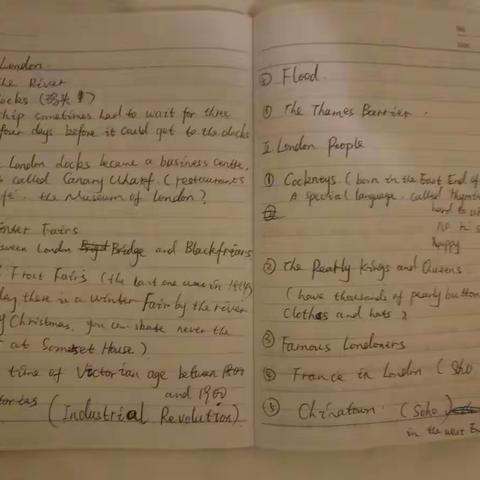 London
The River
ocks (码头)
ship sometimes had to wait for three
four days before it could get to the docks
London docks became a business centre,
s called Canary Wharf. (restaurants
the Museum of London)
nter Fairs
ween London Bridge and Blackfriars
Frost Fairs (the last one was in
day there is a winter Fair by the river
y Christmas, you can skate never the
at Somerset House)
time of Victorian age between
and 1900
tories (Industrial Revolution)
② Flood.
The Thames Barrier.
I. London People
① Cockneys (born in the East End of
A special language. called
hard to
no h s
happy
② The Pearly Kings and Queens
(have thousands of pearly button
Clothes and hats)
③ Famous Londoners
④ France in London (Soho
⑤ Chinatown. (Soho)
in the west E